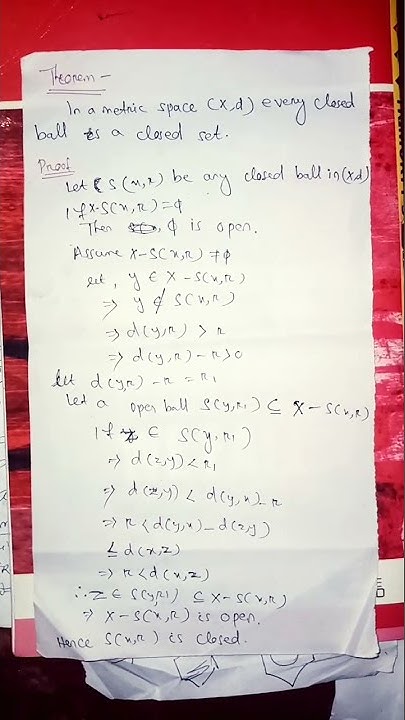 Theorem -
In a metric space (X,d) every closed
ball is a closed set.
Proof
Let S(x,r) be any closed ball in (X,d)
If X-S(x,r) = ϕ
Then ϕ is open.
Assume X-S(x,r) ≠ ϕ
let, y ∈ X-S(x,r)
⇒ y ∉ S(x,r)
⇒ d(y,r) > r
⇒ d(y,r)-r>0
let d(y,r) - r = r₁
Let a open ball S(y,r₁) ⊆ X-S(x,r)
If z ∈ S(y,r₁)
⇒ d(z,y) < r₁
⇒ d(z,y) < d(y,x)-r
⇒ r < d(y,x)-d(z,y)
≤ d(x,z)
⇒ r < d(x,z)
∴ z ∈ S(y,r₁) ⊆ X-S(x,r)
⇒ X-S(x,r) is open.
Hence S(x,r) is closed.